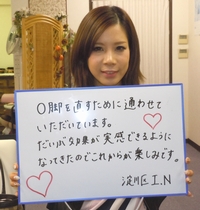 O脚を直すために通わせて
いただいています。
だいぶ効果が実感できるように
なってきたのでこれからが楽しみです。
淀川区 I.N